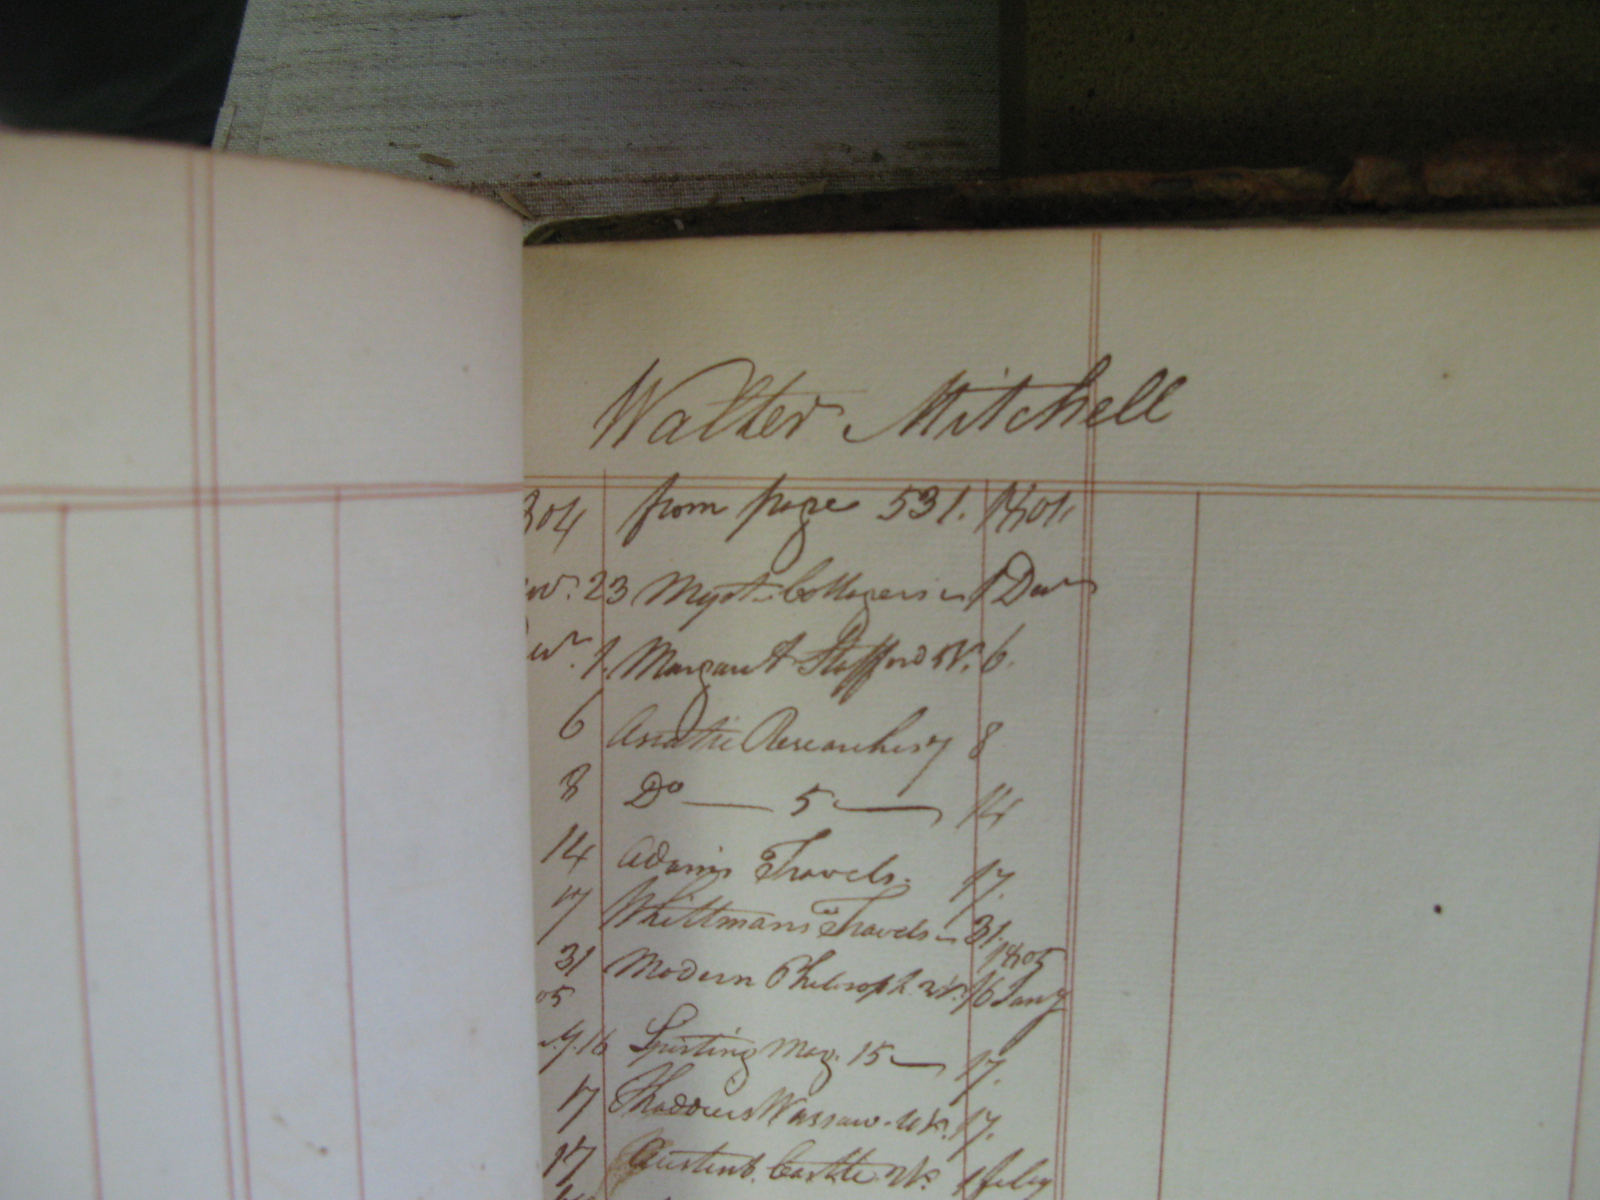 Walter Mitchell
304 from page 531. 1804
ov. 23 Myst. Cottagers 1 Decr
ecr. 1. Margaret Stafford 5V. 6.
6 Asiatic Researches 7 8
8 Do — 5 — 14
14 Adams Travels. 17.
17 Whittmans Travels 31.
31 Modern Philosoph. 2V. 1805 16 Jany
05
y. 16 Sporting Mag. 15 — 17.
17 Thaddeus Warsaw. 4V. 17.
17 Castle 2V. 1 feby